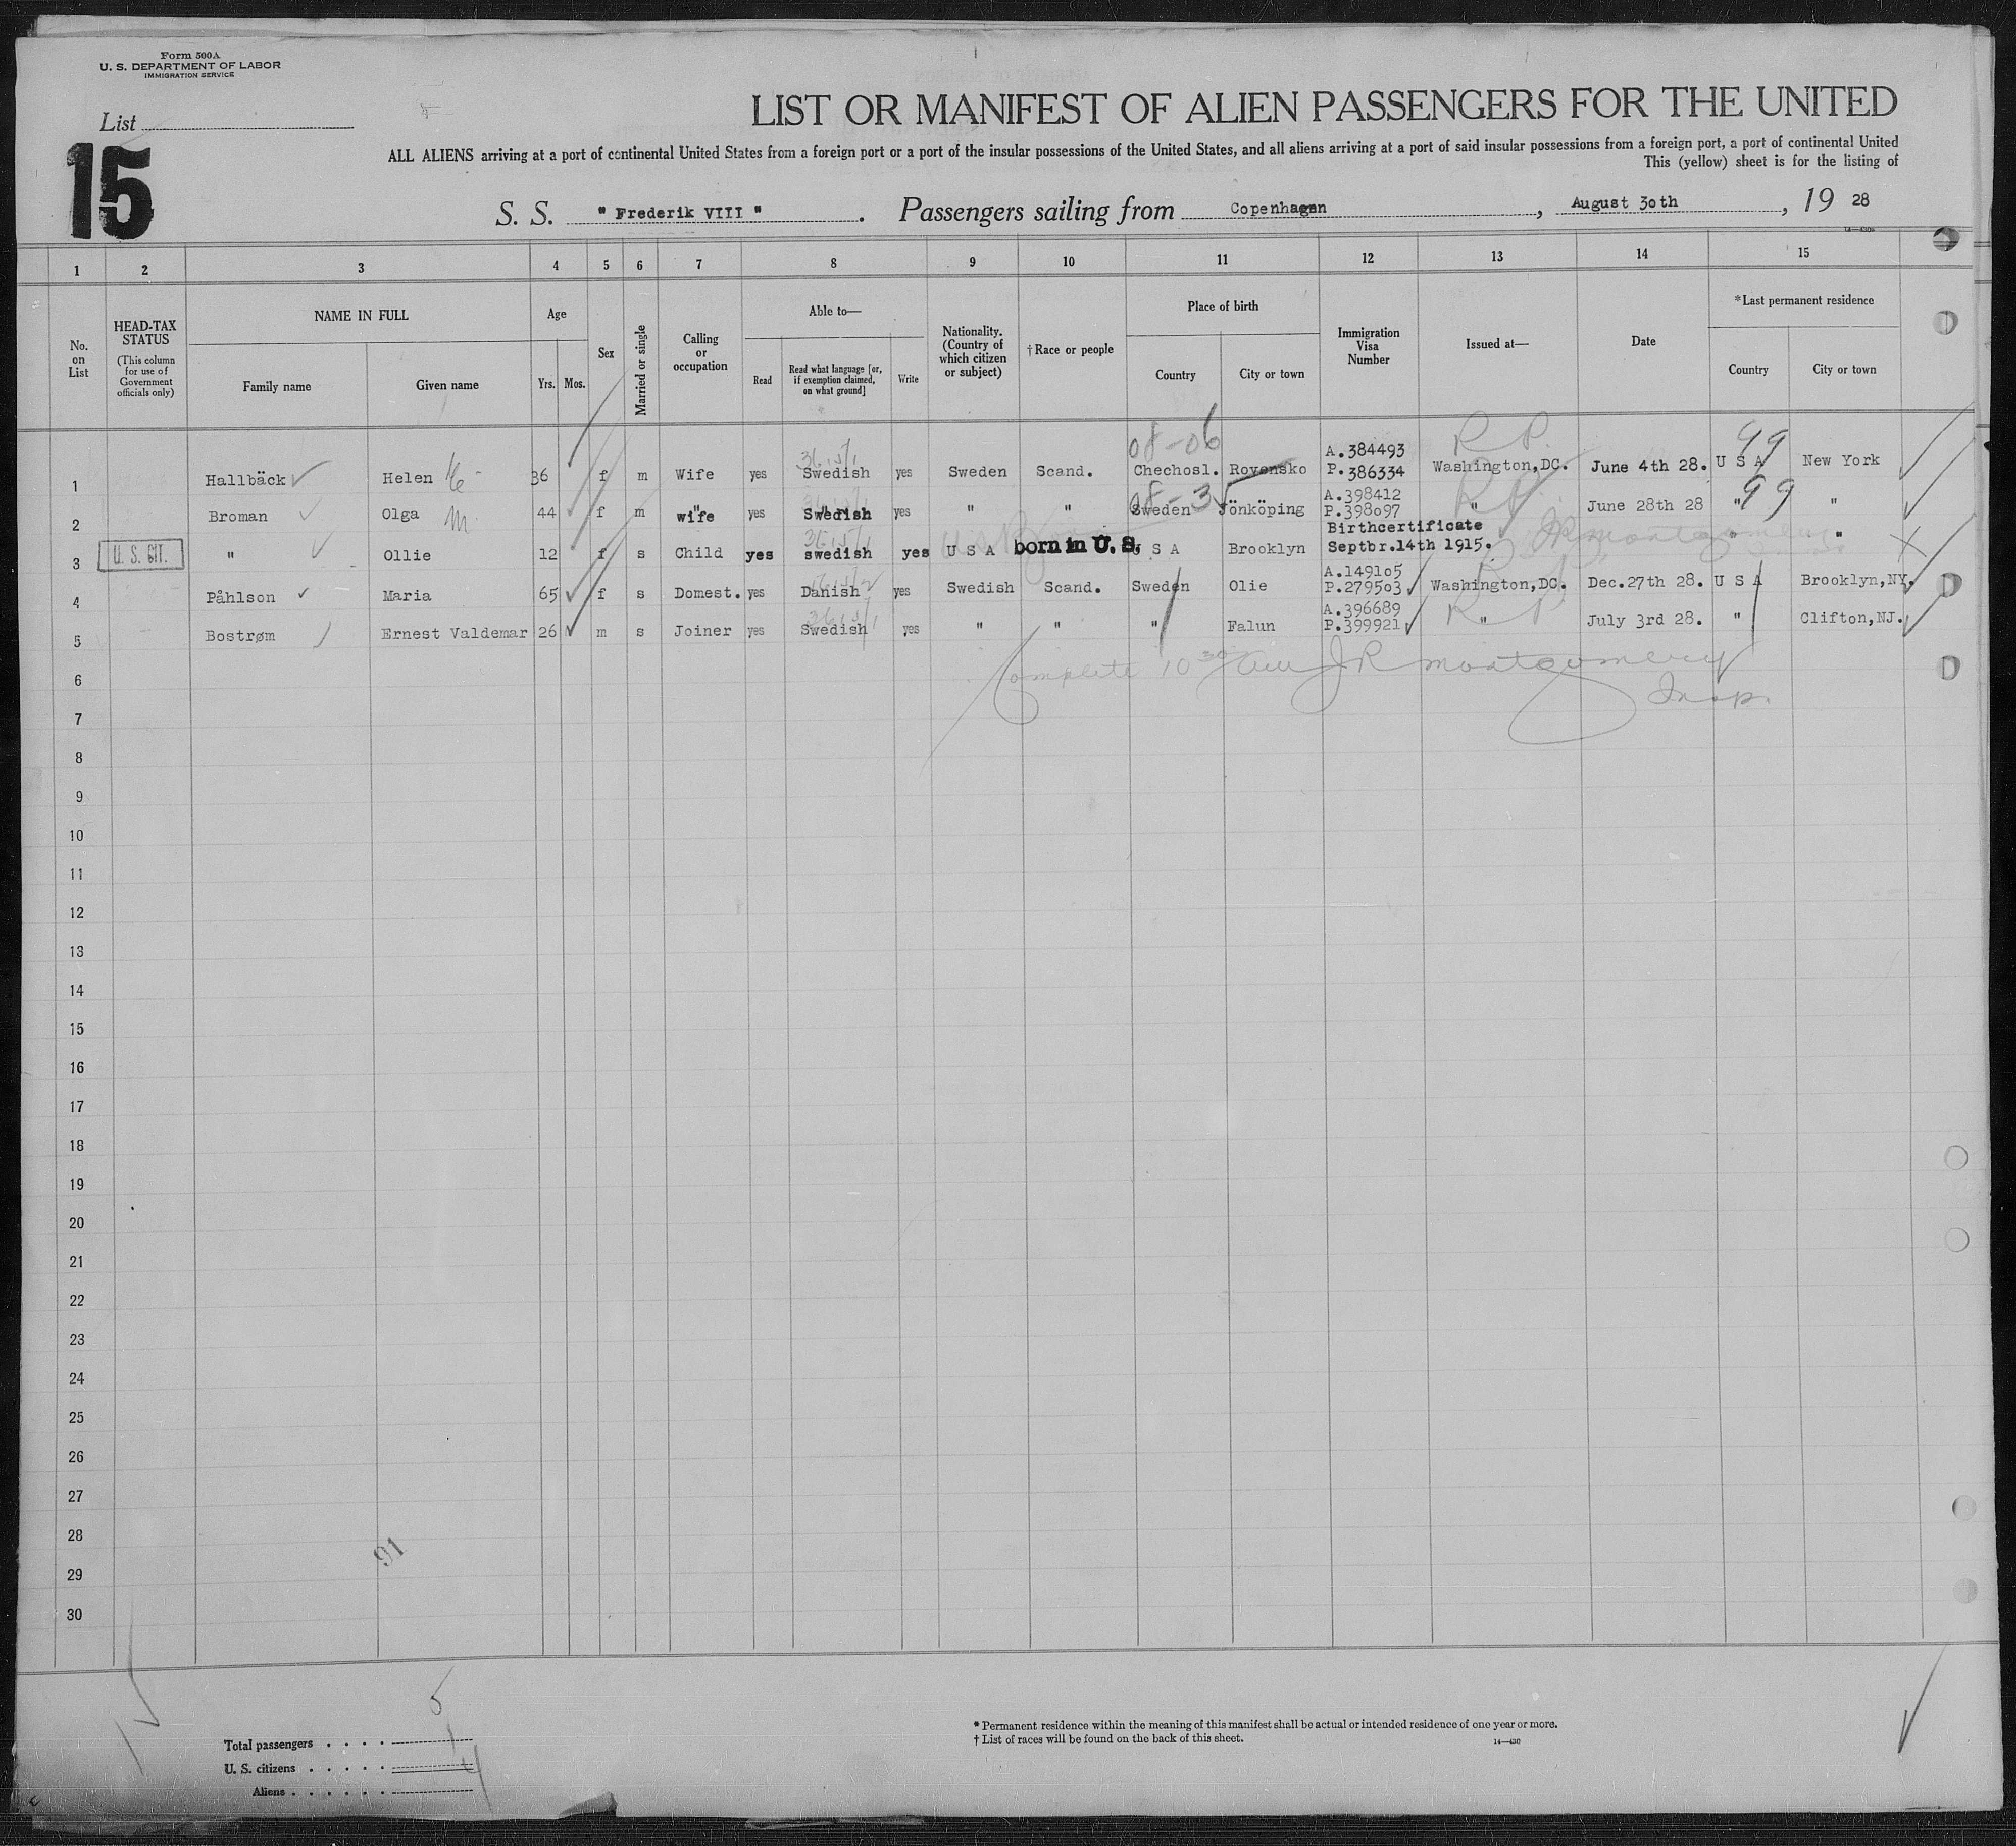 Form 500A
U. S. DEPARTMENT OF LABOR
IMMIGRATION SERVICE
List
15
LIST OR MANIFEST OF ALIEN PASSENGERS FOR THE UNITED
ALL ALIENS arriving at a port of continental United States from a foreign port or a port of the insular possessions of the United States, and all aliens arriving at a port of said insular possessions from a foreign port, a port of continental United
This (yellow) sheet is for the listing of
S. S. "Frederik VIII". Passengers sailing from Copenhagen, August 30th, 19 28
1 2 3 4 5 6 7 8 9 10 11 12 13 14 15
No. on List
HEAD-TAX STATUS (This column for use of Government officials only)
NAME IN FULL
Family name Given name
Age
Yrs. Mos.
Sex
Married or single
Calling or occupation
Able to—
Read Read what language [or, if exemption claimed, on what ground] Write
Nationality. (Country of which citizen or subject)
†Race or people
Place of birth
Country City or town
Immigration Visa Number
Issued at—
Date
*Last permanent residence
Country City or town
08-06 R.P. 99
1 Hallbäck Helen 36 f m Wife yes Swedish yes Sweden Scand. Chechosl. Rovensko A.384493 P.386334 Washington,DC. June 4th 28. U S A New York
2 Broman Olga M. 44 f m wife yes Swedish yes " " Sweden Jönköping A.398412 P.398097 " June 28th 28 " 99 "
3 U. S. CIT. " Ollie 12 f s Child yes swedish yes U S A born in U. S. S A Brooklyn Birthcertificate Septbr.14th 1915. JR Montgomery " "
4 Påhlson Maria 65 f s Domest. yes Danish yes Swedish Scand. Sweden Olie A.149105 P.279503 Washington,DC. Dec.27th 28. U S A Brooklyn,NY.
5 Bostrøm Ernest Valdemar 26 m s Joiner yes Swedish yes " " " Falun A.396689 P.399921 " July 3rd 28. " Clifton,NJ.
Complete 10 30 am JR Montgomery
Insp.
6
7
8
9
10
11
12
13
14
15
16
17
18
19
20
21
22
23
24
25
26
27
28
29
30
91
5
Total passengers . . . . 1
U. S. citizens . . . . . 4
Aliens . . . . . .
* Permanent residence within the meaning of this manifest shall be actual or intended residence of one year or more.
† List of races will be found on the back of this sheet.
14—430